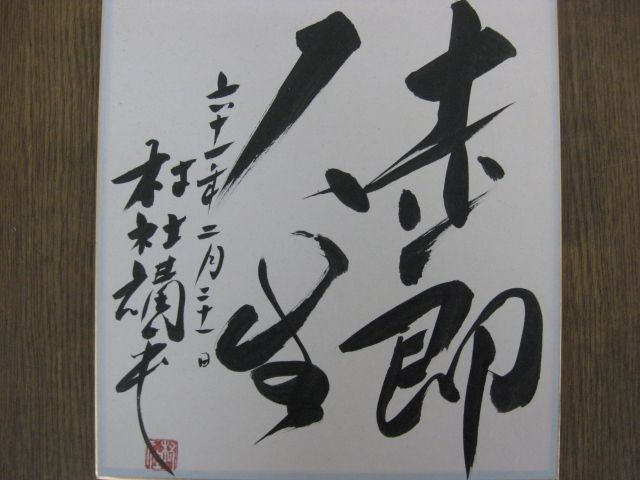 走即
人生
六十一年二月二十一日
村社講平